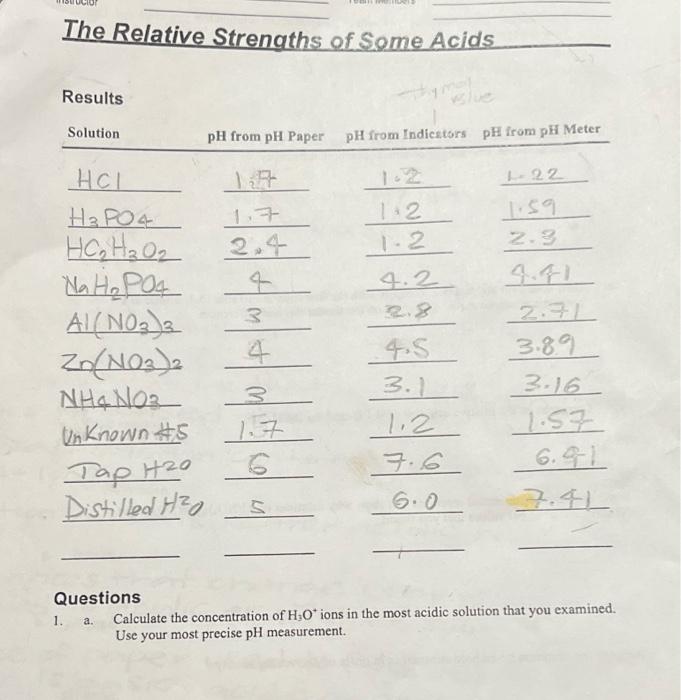 The Relative Strengths of Some Acids
Results
thymol
blue
Solution pH from pH Paper pH from Indicators pH from pH Meter
HCl 1.7 1.2 1.22
H3PO4 1.7 1.2 1.59
HC2H3O2 2.4 1.2 2.3
NaH2PO4 4 4.2 4.41
Al(NO3)3 3 2.8 2.71
Zn(NO3)2 4 4.5 3.89
NH4NO3 3 3.1 3.16
UnKnown #5 1.7 1.2 1.57
Tap H2O 6 7.6 6.91
Distilled H2O 5 6.0 7.41
Questions
1. a. Calculate the concentration of H3O+ ions in the most acidic solution that you examined.
Use your most precise pH measurement.